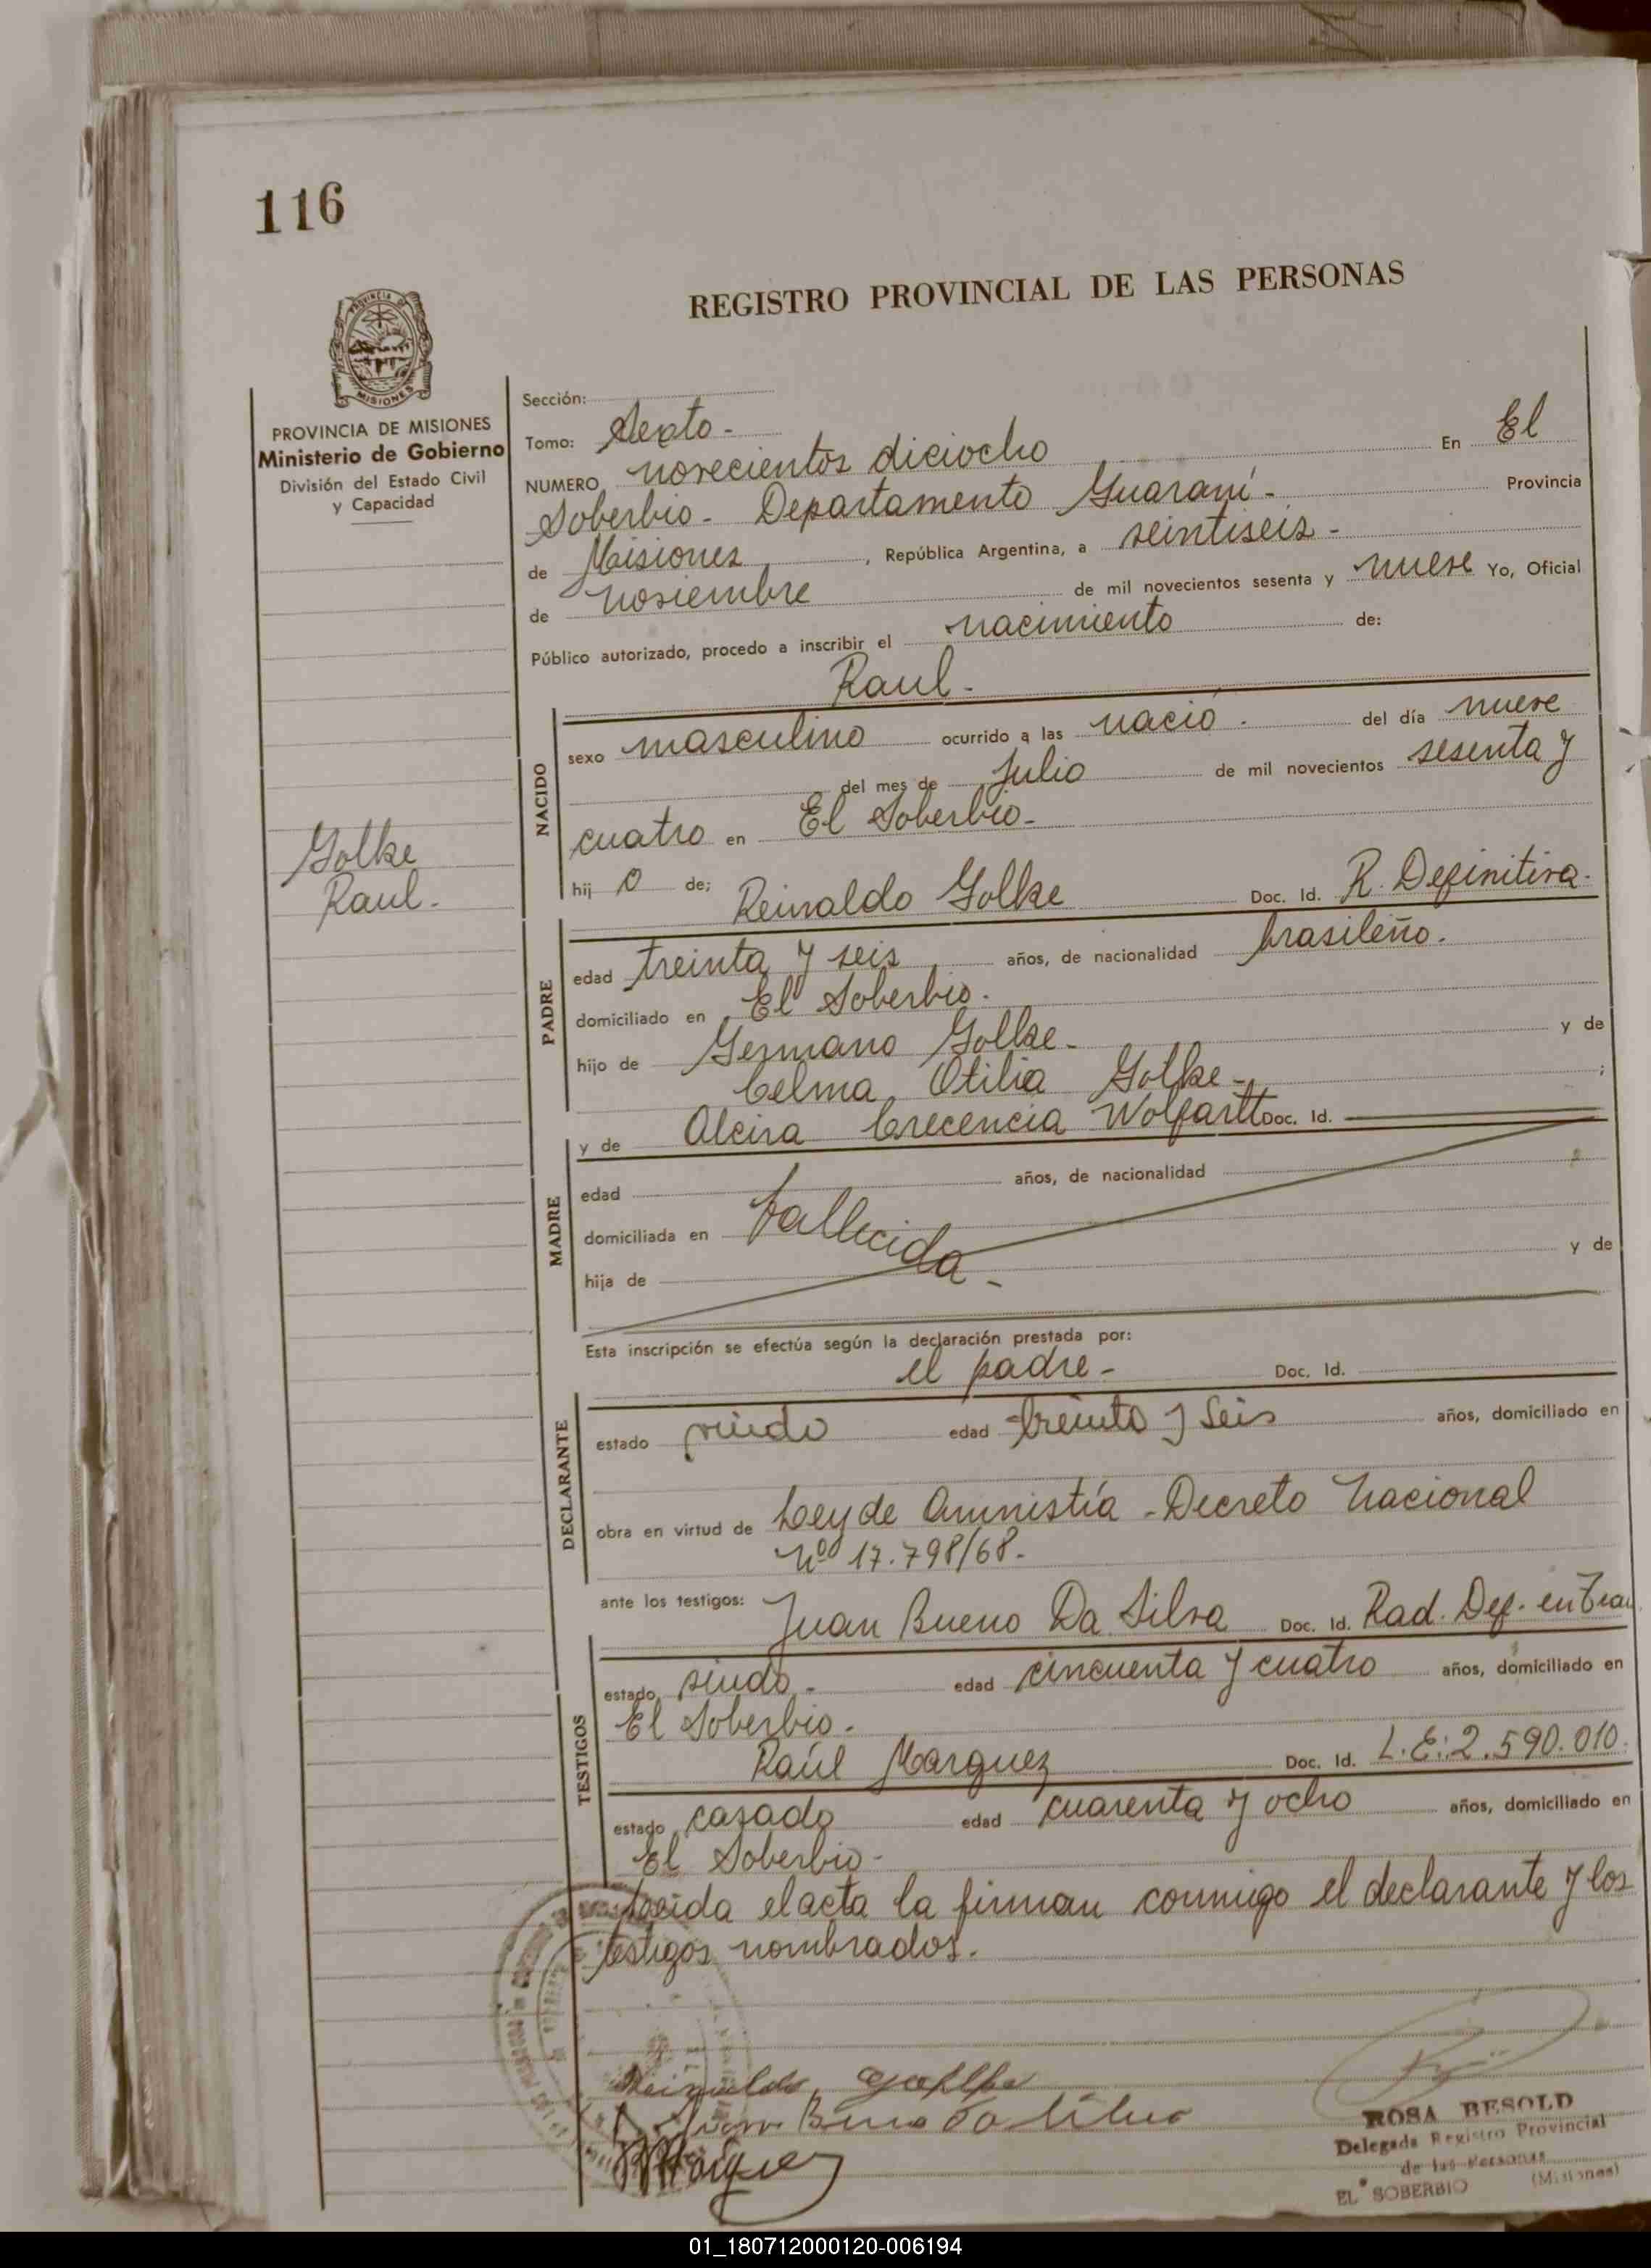 116
REGISTRO PROVINCIAL DE LAS PERSONAS
PROVINCIA DE MISIONES
MISIONES
PROVINCIA DE MISIONES
Ministerio de Gobierno
División del Estado Civil
y Capacidad
Golke
Raul.
Sección:
Tomo: Sexto-
NUMERO novecientos diciocho En El
Soberbio- Departamento Guaraní- Provincia
de Misiones, República Argentina, a veintiseis-
de noviembre de mil novecientos sesenta y nueve Yo, Oficial
Público autorizado, procedo a inscribir el nacimiento de:
Raul-
NACIDO
sexo masculino ocurrido a las nació. del día nueve
del mes de Julio de mil novecientos sesenta y
cuatro en El Soberbio-
hij o de; Reinaldo Golke Doc. Id. R. Definitiva.
PADRE
edad treinta y seis años, de nacionalidad brasileño.
domiciliado en El Soberbio.
hijo de Germano Golke- y de
Celma Otilia Golke- ;
y de Alcira Crecencia Wolfartt Doc. Id.
MADRE
edad años, de nacionalidad
domiciliada en Fallecida-
hija de y de
Esta inscripción se efectúa según la declaración prestada por:
el padre- Doc. Id.
DECLARANTE
estado viudo edad treinta y seis años, domiciliado en
obra en virtud de Ley de Amnistía - Decreto Nacional
Nº 17.798/68-
ante los testigos: Juan Bueno Da Silva Doc. Id. Rad. Def. en Tram
TESTIGOS
estado viudo. edad cincuenta y cuatro años, domiciliado en
El Soberbio.
Raúl Marquez Doc. Id. L.E: 2.590.010.
estado casado edad cuarenta y ocho años, domiciliado en
El Soberbio-
Leída el acta la firman conmigo el declarante y los
testigos nombrados.
Juan Bueno Da Silva
ROSA BESOLD
Delegada Registro Provincial
de las Personas
EL SOBERBIO (Misiones)
01_180712000120-006194